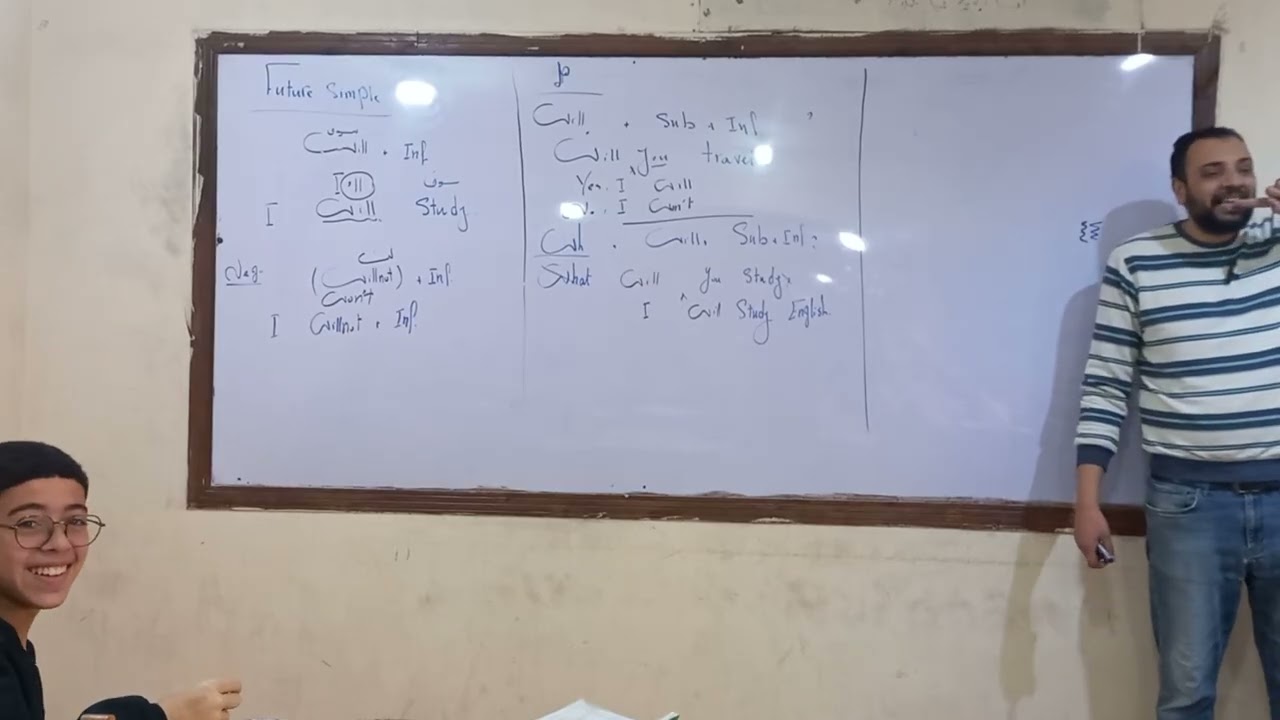 Future Simple
سوف
Will + Inf
I'll سوف
I will Study
Neg. لن
(Will not) + Inf
Won't
I Will not + Inf.
Will + Sub + Inf ?
Will you travel
Yes, I will
No, I won't
Wh + Will + Sub + Inf ?
What will you study?
I will Study English